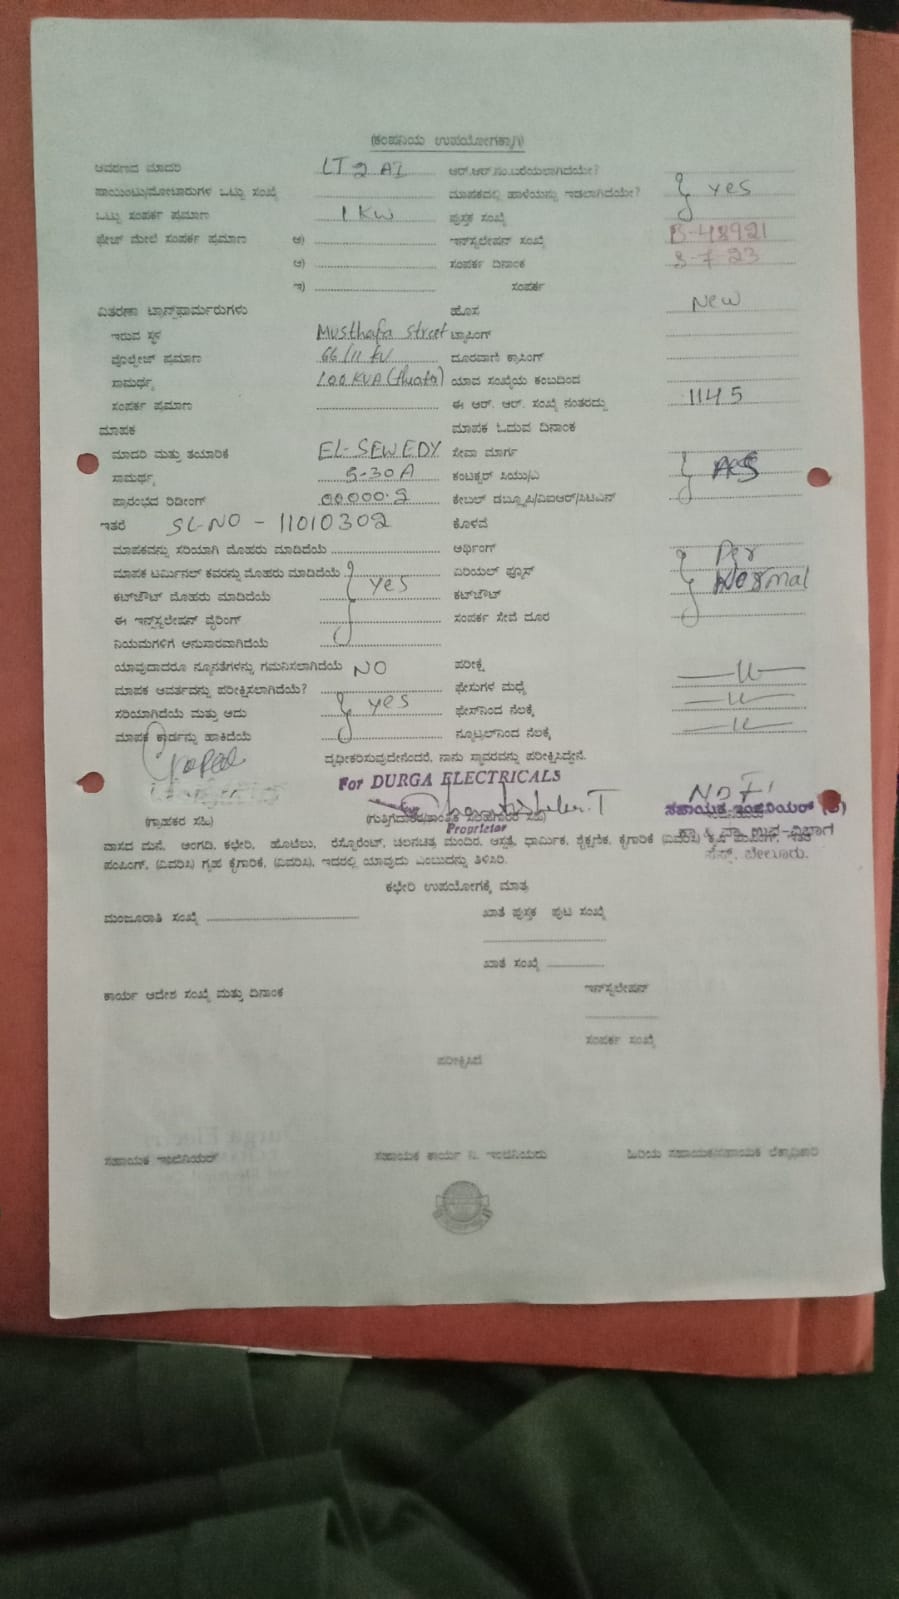 (ಕಂಪನಿಯ ಉಪಯೋಗಕ್ಕಾಗಿ)
ಆವರಣದ ಮಾದರಿ LT 2 AI ಆರ್.ಆರ್.ನಂ.ಬರೆಯಲಾಗಿದೆಯೇ?
ಪಾಯಿಂಟು/ಮೋಟಾರುಗಳ ಒಟ್ಟು ಸಂಖ್ಯೆ ಮಾಪಕದಲ್ಲಿ ಹಾಳೆಯನ್ನು ಇಡಲಾಗಿದೆಯೇ? yes
ಒಟ್ಟು ಸಂಪರ್ಕ ಪ್ರಮಾಣ 1 KW ಪುಸ್ತಕ ಸಂಖ್ಯೆ
ಫೇಜ್ ಮೇಲೆ ಸಂಪರ್ಕ ಪ್ರಮಾಣ ಅ) ಇನ್‌ಸ್ಟಲೇಷನ್ ಸಂಖ್ಯೆ B-48921
ಆ) ಸಂಪರ್ಕ ದಿನಾಂಕ 3-7-23
ಇ) ಸಂಪರ್ಕ
ವಿತರಣಾ ಟ್ರಾನ್ಸ್‌ಫಾರ್ಮರುಗಳು ಹೊಸ New
ಇರುವ ಸ್ಥಳ Musthafa street ಟ್ಯಾಪಿಂಗ್
ವೋಲ್ಟೇಜ್ ಪ್ರಮಾಣ 66/11 kV ದೂರವಾಣಿ ಕ್ರಾಸಿಂಗ್
ಸಾಮರ್ಥ್ಯ 100 KVA ಯಾವ ಸಂಖ್ಯೆಯ ಕಂಬದಿಂದ
ಸಂಪರ್ಕ ಪ್ರಮಾಣ ಈ ಆರ್. ಆರ್. ಸಂಖ್ಯೆ ನಂತರದ್ದು 1145
ಮಾಪಕ ಮಾಪಕ ಓದುವ ದಿನಾಂಕ
ಮಾದರಿ ಮತ್ತು ತಯಾರಿಕೆ EL-SEWEDY ಸೇವಾ ಮಾರ್ಗ
ಸಾಮರ್ಥ್ಯ 5-30A ಕಂಡಕ್ಟರ್ ಸಿಯು/ಎ
ಪ್ರಾರಂಭದ ರಿಡೀಂಗ್ 00000.2 ಕೇಬಲ್ ಡಬ್ಲ್ಯೂಪಿ/ವಿಐಆರ್/ಸಿಟಿಎಸ್
ಇತರೆ SL-NO - 11010302 ಕೊಳವೆ
ಮಾಪಕವನ್ನು ಸರಿಯಾಗಿ ಮೊಹರು ಮಾಡಿದೆಯೆ ಅರ್ಥಿಂಗ್
ಮಾಪಕ ಟರ್ಮಿನಲ್ ಕವರನ್ನು ಮೊಹರು ಮಾಡಿದೆಯೆ yes ಏರಿಯಲ್ ಫ್ಯೂಸ್ Normal
ಕಟ್‌ಔಟ್ ಮೊಹರು ಮಾಡಿದೆಯೆ ಕಟ್‌ಔಟ್
ಈ ಇನ್‌ಸ್ಟಲೇಷನ್ ವೈರಿಂಗ್ ಸಂಪರ್ಕ ಸೇವೆ ದೂರ
ನಿಯಮಗಳಿಗೆ ಅನುಸಾರವಾಗಿದೆಯೆ
ಯಾವುದಾದರೂ ನ್ಯೂನತೆಗಳನ್ನು ಗಮನಿಸಲಾಗಿದೆಯೆ NO ಪರೀಕ್ಷೆ
ಮಾಪಕ ಆವರ್ತವನ್ನು ಪರೀಕ್ಷಿಸಲಾಗಿದೆಯೆ? ಫೇಸುಗಳ ಮಧ್ಯೆ
ಸರಿಯಾಗಿದೆಯೆ ಮತ್ತು ಅದು yes ಫೇಸ್‌ನಿಂದ ನೆಲಕ್ಕೆ
ಮಾಪಕ ಕಾರ್ಡನ್ನು ಹಾಕಿದೆಯೆ ನ್ಯೂಟ್ರಲ್‌ನಿಂದ ನೆಲಕ್ಕೆ
ದೃಢೀಕರಿಸುವುದೇನೆಂದರೆ, ನಾನು ಸ್ಥಾವರವನ್ನು ಪರೀಕ್ಷಿಸಿದ್ದೇನೆ.
For DURGA ELECTRICALS
Proprietor
ಸಹಾಯಕ ಇಂಜಿನಿಯರ್ (ವಿ)
(ಗ್ರಾಹಕರ ಸಹಿ)
ಸೆಸ್ಕ್, ಬೇಲೂರು.
ವಾಸದ ಮನೆ, ಅಂಗಡಿ, ಕಛೇರಿ, ಹೊಟೆಲು, ರೆಸ್ಟೊರೆಂಟ್, ಚಲನಚಿತ್ರ ಮಂದಿರ, ಆಸ್ಪತ್ರೆ, ಧಾರ್ಮಿಕ, ಶೈಕ್ಷಣಿಕ, ಕೈಗಾರಿಕೆ (ವಿವರಿಸಿ)
ಪಂಪಿಂಗ್, (ವಿವರಿಸಿ) ಗೃಹ ಕೈಗಾರಿಕೆ, (ವಿವರಿಸಿ), ಇದರಲ್ಲಿ ಯಾವುದು ಎಂಬುದನ್ನು ತಿಳಿಸಿರಿ.
ಕಛೇರಿ ಉಪಯೋಗಕ್ಕೆ ಮಾತ್ರ
ಮಂಜೂರಾತಿ ಸಂಖ್ಯೆ ಖಾತೆ ಪುಸ್ತಕ ಪುಟ ಸಂಖ್ಯೆ
ಖಾತೆ ಸಂಖ್ಯೆ
ಕಾರ್ಯ ಆದೇಶ ಸಂಖ್ಯೆ ಮತ್ತು ದಿನಾಂಕ ಇನ್‌ಸ್ಟಲೇಷನ್
ಸಂಪರ್ಕ ಸಂಖ್ಯೆ
ಪರೀಕ್ಷಿಸಿದೆ
ಸಹಾಯಕ ಇಂಜಿನಿಯರ್ ಸಹಾಯಕ ಕಾರ್ಯ ನಿ. ಇಂಜಿನಿಯರು ಹಿರಿಯ ಸಹಾಯಕ/ಸಹಾಯಕ ಲೆಕ್ಕಾಧಿಕಾರಿ